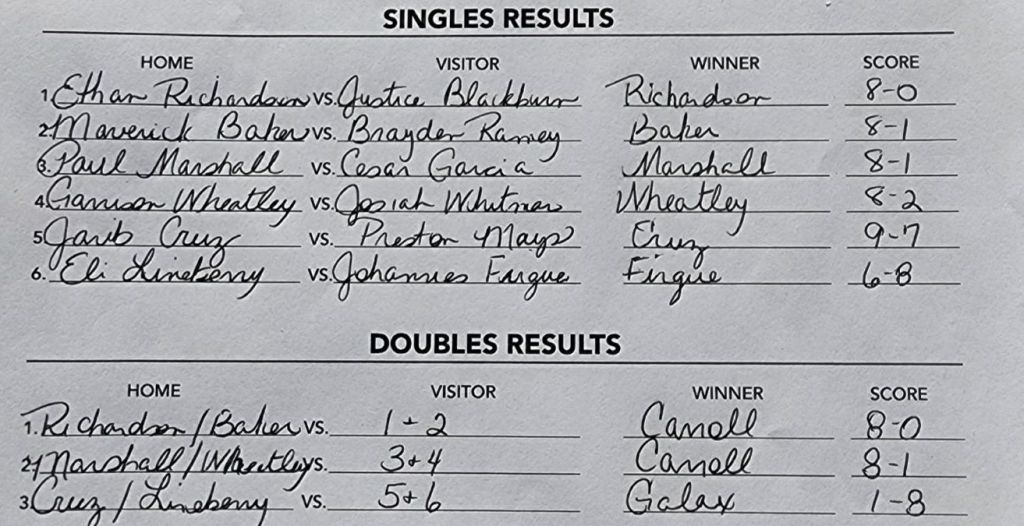 SINGLES RESULTS
HOME VISITOR WINNER SCORE
1. Ethan Richardson vs. Justice Blackburn Richardson 8-0
2. Maverick Baker vs. Brayden Ramey Baker 8-1
3. Paul Marshall vs. Cesar Garcia Marshall 8-1
4. Garrison Wheatley vs. Josiah Whitmer Wheatley 8-2
5. Jarib Cruz vs. Preston Mays Cruz 9-7
6. Eli Lineberry vs. Johannes Firgue Firgue 6-8
DOUBLES RESULTS
HOME VISITOR WINNER SCORE
1. Richardson/Baker vs. 1+2 Carroll 8-0
2. Marshall/Wheatley vs. 3+4 Carroll 8-1
3. Cruz/Lineberry vs. 5+6 Galax 1-8